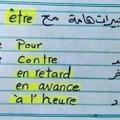 هامة مع être
Pour
contre
en retard
en avance
à l'heure